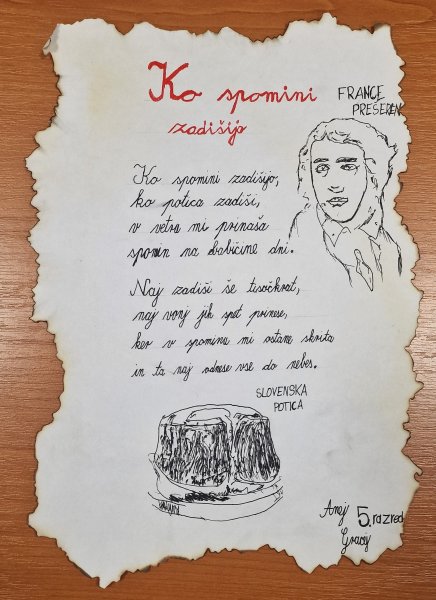 Ko spomini
zadišijo
FRANCE
PREŠEREN
Ko spomini zadišijo,
ko potica zadiši,
v vetru mi prinaša
spomin na babičine dni.
Naj zadiši še tisočkrat,
naj vonj jih spet prinese,
ker v spominu mi ostane skrita
in ta naj odnese vse do nebes.
SLOVENSKA
POTICA
5. razred